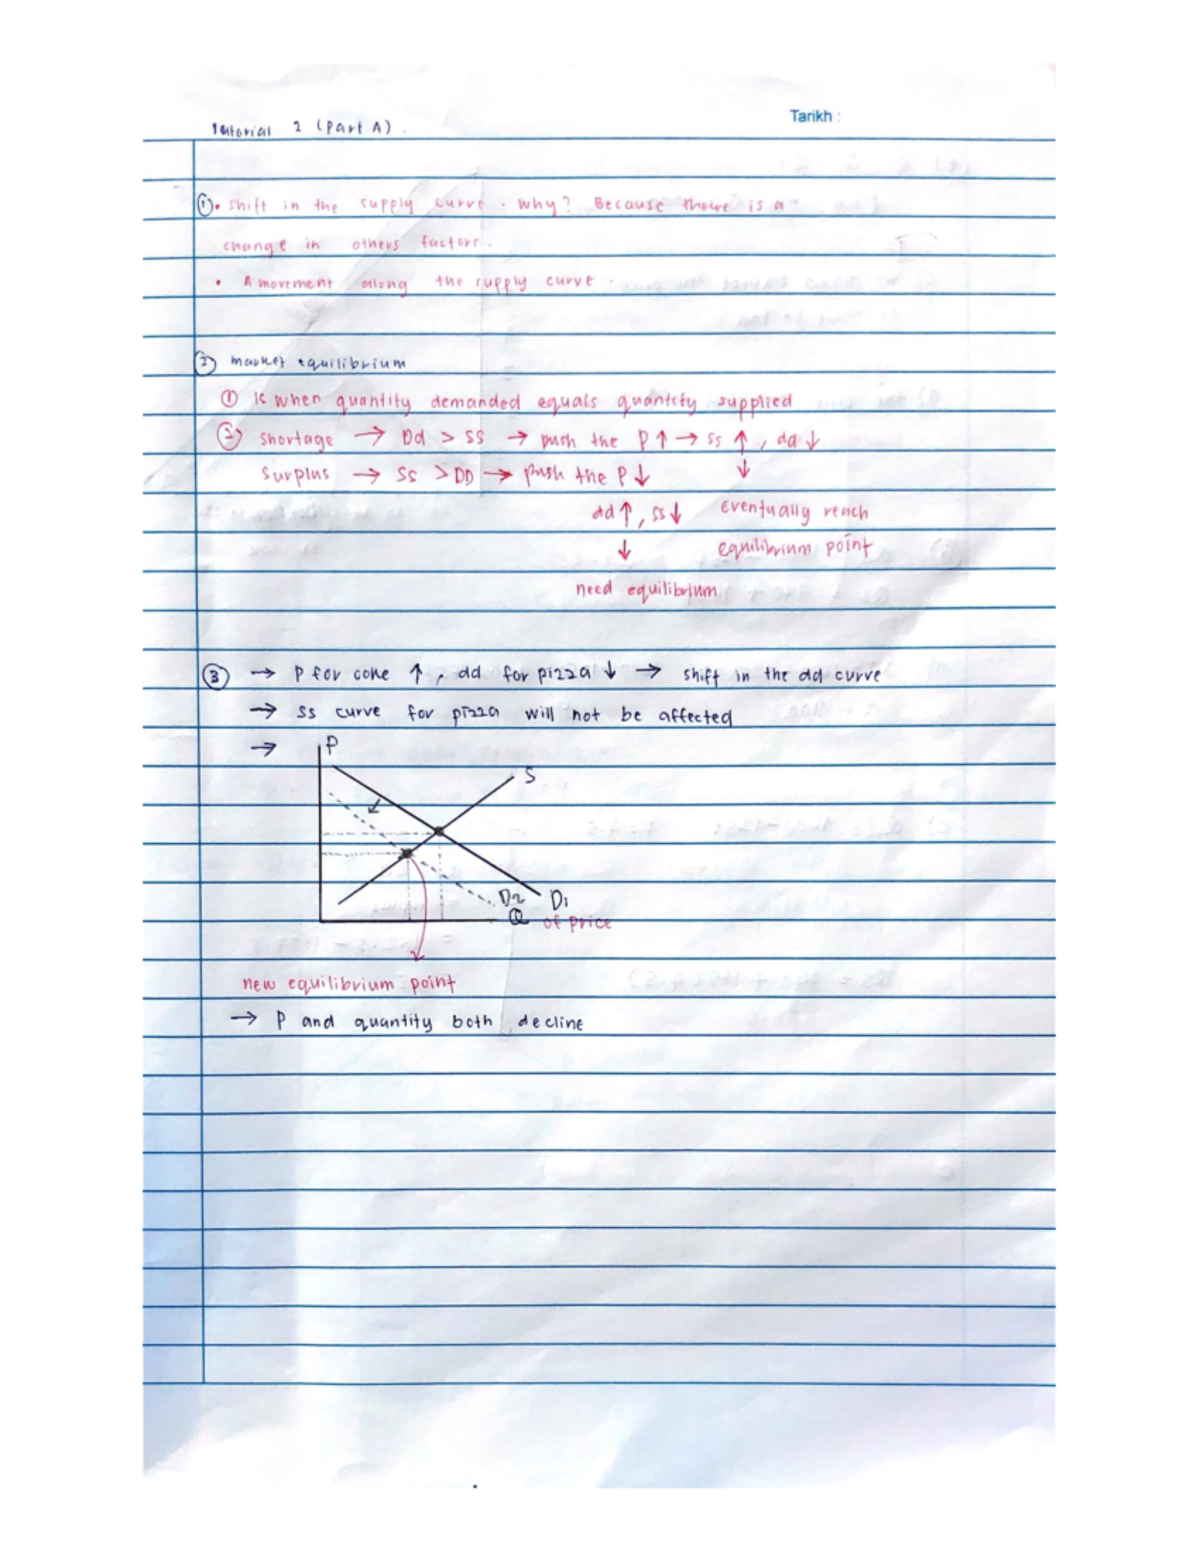 Tutorial 2 (Part A).
Tarikh :
①• Shift in the supply curve. Why? Because there is a
change in others factors.
• A movement along the supply curve.
② market equilibrium
① Is when quantity demanded equals quantity supplied
② Shortage → Dd > SS → push the P↑ → Ss ↑, dd ↓
Surplus → Ss > DD → push the P↓ ↓
dd↑, ss↓ eventually reach
↓ equilibrium point
need equilibrium
③ → P for coke ↑, dd for pizza ↓ → shift in the dd curve
→ SS curve for pizza will not be affected
→ P
S
D2 D1
Q of price
new equilibrium point
→ P and quantity both decline